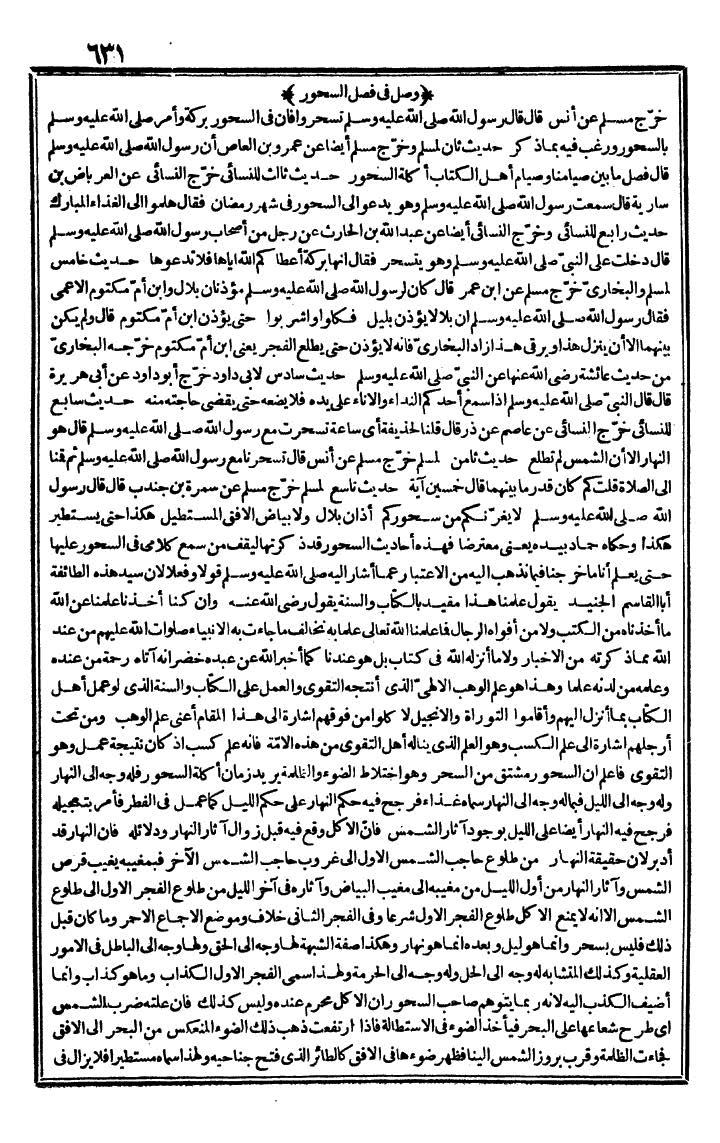 ٦٣١
﴿وصل فى فصل السحور﴾
خرّج مسلم عن أنس قال قال رسول الله صلى الله عليه وسلم تسحروا فان فى السحور بركة وأمر صلى الله عليه وسلم
بالسحور ورغب فيه بماذكر حديث ثان لمسلم وخرّج مسلم أيضا عن عمرو بن العاص أن رسول الله صلى الله عليه وسلم
قال فصل ما بين صيامنا وصيام أهل الكتاب أكلة السحور حديث ثالث للنسائى خرّج النسائى عن العرباض بن
سارية قال سمعت رسول الله صلى الله عليه وسلم وهو يدعو الى السحور فى شهر رمضان فقال هلموا الى الغذاء المبارك
حديث رابع للنسائى وخرّج النسائى أيضا عن عبد الله بن الحارث عن رجل من أصحاب رسول الله صلى الله عليه وسلم
قال دخلت على النبىّ صلى الله عليه وسلم وهو يتسحر فقال انها بركة أعطاكم الله اياها فلا تدعوها حديث خامس
لمسلم والبخارىّ خرّج مسلم عن ابن عمر قال كان لرسول الله صلى الله عليه وسلم مؤذنان بلال وابن أمّ مكتوم الاعمى
فقال رسول الله صلى الله عليه وسلم ان بلالا يؤذن بليل فكلوا واشربوا حتى يؤذن ابن أمّ مكتوم قال ولم يكن
بينهما الا أن ينزل هذا ويرقى هذا زاد البخارىّ فانه لا يؤذن حتى يطلع الفجر يعنى ابن أمّ مكتوم خرّجه البخارىّ
من حديث عائشة رضى الله عنها عن النبىّ صلى الله عليه وسلم حديث سادس لابى داود خرّج أبو داود عن أبى هريرة
قال قال النبىّ صلى الله عليه وسلم اذا سمع أحدكم النداء والاناء على يده فلا يضعه حتى يقضى حاجته منه حديث سابع
للنسائى خرّج النسائى عن عاصم عن ذر قال قلنا لحذيفة أى ساعة تسحرت مع رسول الله صلى الله عليه وسلم قال هو
النهار الا أن الشمس لم تطلع حديث ثامن لمسلم خرّج مسلم عن أنس قال تسحرنا مع رسول الله صلى الله عليه وسلم ثم قمنا
الى الصلاة قلت كم كان قدر ما بينهما قال خمسين آية حديث تاسع لمسلم خرّج مسلم عن سمرة بن جندب قال قال رسول
الله صلى الله عليه وسلم لا يغرّنكم من سحوركم أذان بلال ولا بياض الافق المستطيل هكذا حتى يستطير
هكذا وحكاه حماد بيده يعنى معترضا فهذه أحاديث السحور قد ذكرتها ليقف من سمع كلامى فى السحور عليها
حتى يعلم أنا ما خرجنا فيما نذهب اليه من الاعتبار عما أشار اليه صلى الله عليه وسلم قولا وفعلا لان سيد هذه الطائفة
أبا القاسم الجنيد يقول علمنا هذا مقيد بالكتاب والسنة يقول رضى الله عنه وان كنا أخذنا علمنا عن الله
ما أخذناه من الكتب ولا من أفواه الرجال فاعلمنا الله تعالى علما به نخالف ما جاءت به الانبياء صلوات الله عليهم من عند
الله مما ذكرته من الاخبار ولا ما أنزله الله فى كتاب بل هو عندنا كما أخبر الله عن عبده خضر انه آتاه رحمة من عنده
وعلمه من لدنه علما وهذا هو علم الوهب الالهىّ الذى أنتجه التقوى والعمل على الكتاب والسنة الذى لو عمل أهل
الكتاب بما أنزل اليهم وأقاموا التوراة والانجيل لا كلوا من فوقهم اشارة الى هذا المقام أعنى علم الوهب ومن تحت
أرجلهم اشارة الى علم الكسب وهو العلم الذى يناله أهل التقوى من هذه الامّة فانه علم كسب اذ كان نتيجة عمل وهو
التقوى فاعلم ان السحور مشتق من السحر وهو اختلاط الضوء والظلمة يريد زمان أكلة السحور فله وجه الى النهار
وله وجه الى الليل فبماله وجه الى النهار سماه غذاء فرجح فيه حكم النهار على حكم الليل كما عمل فى الفطر فأمر بتعجيله
فرجح فيه النهار أيضا على الليل بوجود آثار الشمس فانّ الاكل وقع فيه قبل زوال آثار النهار ودلائله فان النهار قد
أدبر لان حقيقة النهار من طلوع حاجب الشمس الاول الى غروب حاجب الشمس الآخر فبمغيبه يغيب قرص
الشمس وآثار النهار من أول الليل من مغيبه الى مغيب البياض وآثاره فى آخر الليل من طلوع الفجر الاول الى طلوع
الشمس الا انه لا يمنع الاكل طلوع الفجر الاول شرعا وفى الفجر الثانى خلاف وموضع الاجماع الاحمر وما كان قبل
ذلك فليس بسحر وانما هو ليل وبعده انما هو نهار وهكذا صفة الشبهة لها وجه الى الحق ولها وجه الى الباطل فى الامور
العقلية وكذلك المتشابه له وجه الى الحل وله وجه الى الحرمة ولهذا سمى الفجر الاول الكذاب وما هو كذاب وانما
أضيف الكذب اليه لانه ربما يتوهم صاحب السحور ان الاكل محرم عنده وليس كذلك فان علته ضرب الشمس
اى طرح شعاعها على البحر فيأخذ الضوء فى الاستطالة فاذا ارتفعت ذهب ذلك الضوء المنعكس من البحر الى الافق
فجاءت الظلمة وقرب بروز الشمس الينا فظهر ضوءها فى الافق كالطائر الذى فتح جناحيه ولهذا سماه مستطيرا فلا يزال فى